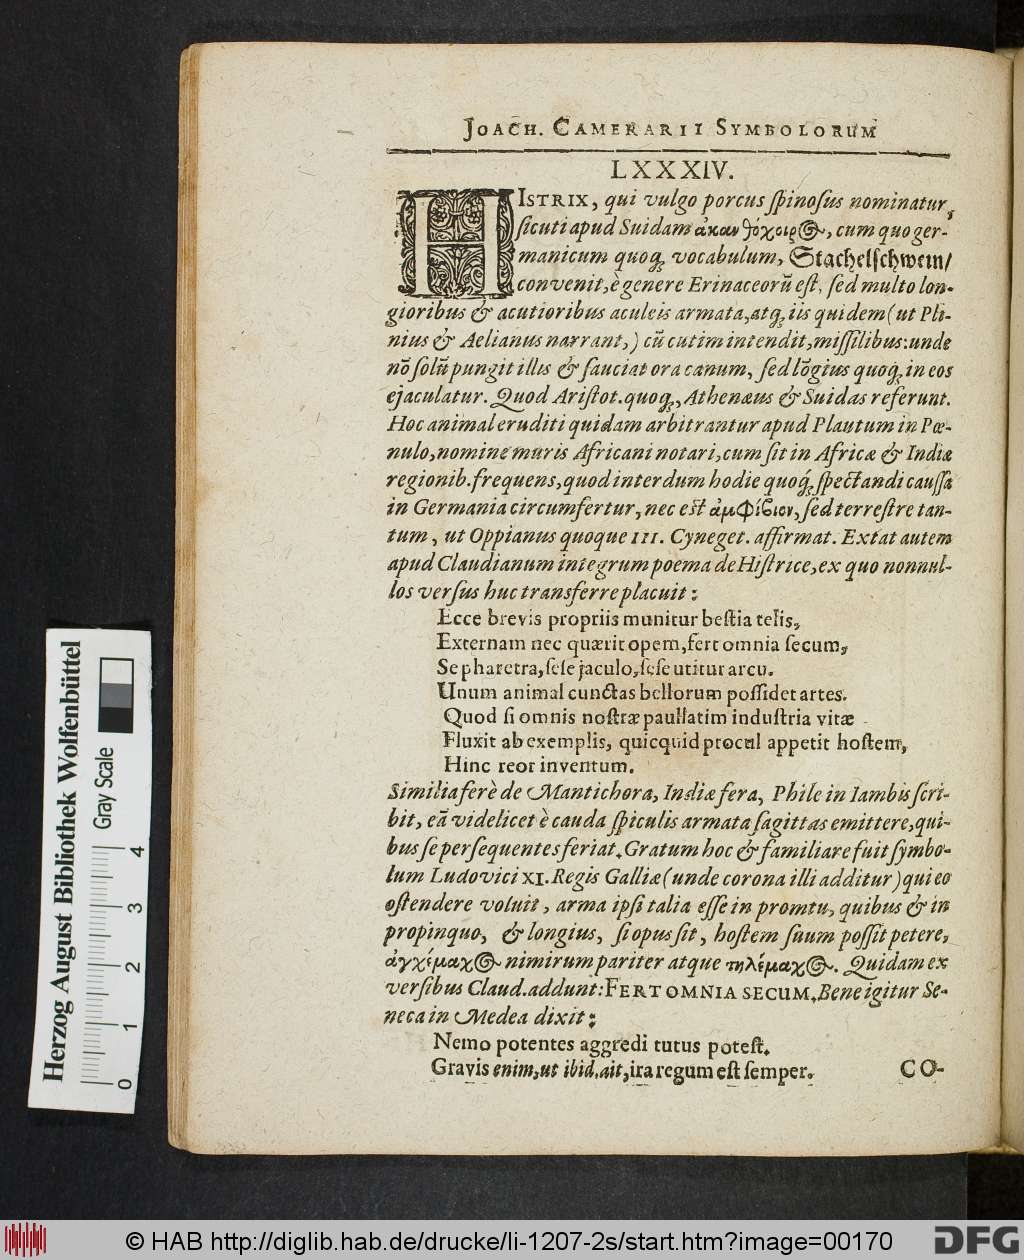 JOACH. CAMERARII SYMBOLORUM
LXXXIV.
HISTRIX, qui vulgo porcus ſpinoſus nominatur,
ſicuti apud Suidam ἀκανθόχοιρος, cum quo ger-
manicum quoq; vocabulum, Stachelſchwein/
convenit, è genere Erinaceorũ eſt, ſed multo lon-
gioribus & acutioribus aculeis armata, atq; iis quidem (ut Pli-
nius & Aelianus narrant,) cũ cutim intendit, miſſilibus: unde
nõ ſolũ pungit illis & ſauciat ora canum, ſed lõgius quoq; in eos
ejaculatur. Quod Ariſtot. quoq;, Athenæus & Suidas referunt.
Hoc animal eruditi quidam arbitrantur apud Plautum in Pœ-
nulo, nomine muris Africani notari, cum ſit in Africæ & Indiæ
regionib. frequens, quod interdum hodie quoq; ſpectandi cauſſa
in Germania circumfertur, nec eſt ἀμφίβιον, ſed terreſtre tan-
tum, ut Oppianus quoque III. Cyneget. affirmat. Extat autem
apud Claudianum integrum poema de Hiſtrice, ex quo nonnul-
los verſus huc transferre placuit:
Ecce brevis propriis munitur beſtia telis,
Externam nec quærit opem, fert omnia ſecum,
Se pharetra, ſeſe jaculo, ſeſe utitur arcu.
Unum animal cunctas bellorum poſſidet artes.
Quod ſi omnis noſtræ paullatim induſtria vitæ
Fluxit ab exemplis, quicquid procul appetit hoſtem,
Hinc reor inventum.
Similia ferè de Mantichora, Indiæ fera, Phile in Iambis ſcri-
bit, eã videlicet è cauda ſpiculis armata ſagittas emittere, qui-
bus ſe perſequentes feriat. Gratum hoc & familiare fuit ſymbo-
lum Ludovici XI. Regis Galliæ (unde corona illi additur) qui eo
oſtendere voluit, arma ipſi talia eſſe in promtu, quibus & in
propinquo, & longius, ſi opus ſit, hoſtem ſuum poſſit petere,
ἀγχέμαχος nimirum pariter atque τηλέμαχος. Quidam ex
verſibus Claud. addunt: FERT OMNIA SECUM. Bene igitur Se-
neca in Medea dixit:
Nemo potentes aggredi tutus poteſt.
Gravis enim, ut ibid. ait, ira regum eſt ſemper.
CO-
Herzog August Bibliothek Wolfenbüttel
Gray Scale
0 1 2 3 4
© HAB http://diglib.hab.de/drucke/li-1207-2s/start.htm?image=00170
DFG